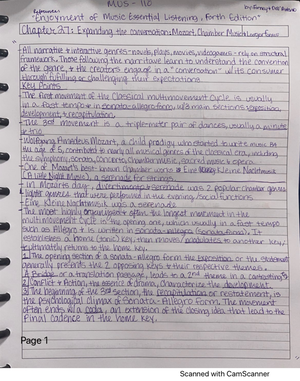 MUS-110
by: Forney + Dell'Antonio
Reference:
"Enjoyment of Music Essential Listening, Forth Edition"
Chapter 27: Expanding the conversation: Mozart, Chamber Music, + Larger forms
All narrative + interactive genres - novels, plays, movies, videogames - rely on structural
framework. Those following the narrative learn to understand the convention
of the genre, + the creators engage in a "conversation" with its consumer
through fulfilling or challenging their expectations.
Key Points
- The first movement of the Classical multimovement cycle is usually
in a fast tempo + in sonata-allegro form, w/3 main sections: exposition,
development, + recapitulation.
- The 3rd movement is a triple-meter pair of dances, usually a minuete
+ trio.
- Wolfgang Amadeus Mozart, a child prodigy who started to write music b4
the age of 5, contributed to nearly all musical genres of the classical era, including
the symphony, sonata, concerto, chamber music, sacred music + opera.
- One of Mozart's best-known chamber works is Eine Kleine Nachtmusik
(A Little Night Music), a serenade for strings.
- In Mozart's day, divertimento + serenade was 2 popular chamber genres
- lighter genres that were performed in the evening /social functions.
- Eine Kleine Nachtmusik was a serenade
- The most highly organized + often the longest movement in the
multimovement cycle is the opening one, which usually in a fast tempo
such as Allegro + is written in sonata-allegro (sonata form). It
establishes a home (tonic) key, then moves/modulates to another key/
+ ultimately returns to the home key.
1] The opening section of a sonata-allegro form the exposition, or the statement,
generally presents the 2 opposing keys + their respective themes.
- A Bridge, or a translation passage, leads to a 2nd theme in a contrasting key
2] Conflict + Action, the essence of drama, characterize the development.
3] The beginning of the 3rd section, the recapitulation, or restatement, is
the psychological climax of Sonata-Allegro form. The movement
often ends w/a coda, an extension of the closing idea that leads to the
final cadence in the home key.
Page 1
Scanned with CamScanner